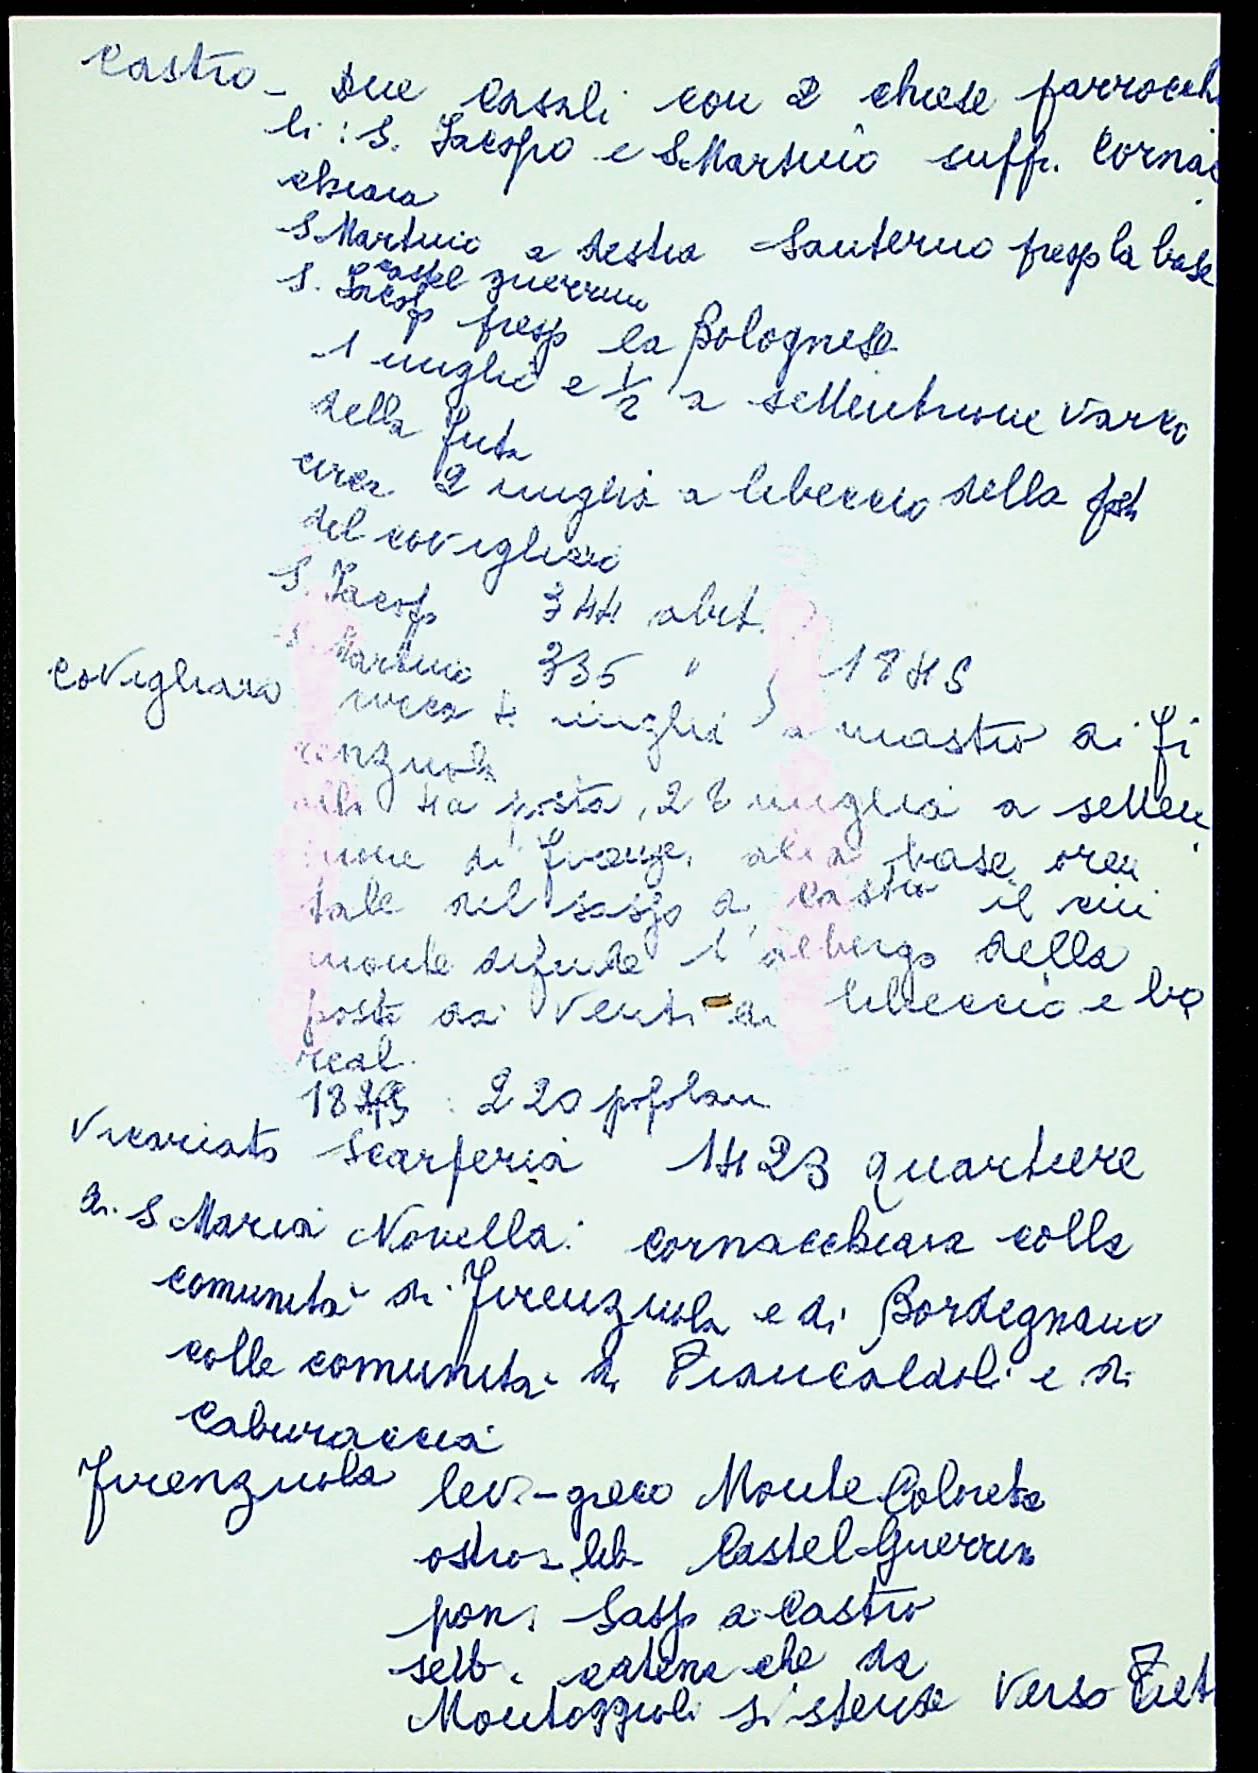 Castro - Due casali con 2 chiese parrocch
li: S. Jacopo e S. Martino suff. Cornac
chiaia
S. Martino a destra Santerno presso la base
Castel Guerrino
S. Jacopo presso la Bolognese
1 miglio e 1/2 a settentrione varco
della Futa
circa 2 miglia a libeccio della posta
del Covigliaio
S. Jacopo 344 abit.
S. Martino 335 " } 1845
Covigliaio circa 4 miglia a maestro di Fi
renzuola
alla 4a posta, 28 miglia a setten
trione di Firenze, alla base orien
tale del sasso di Castro il cui
monte difende l'albergo della
posta dai venti di libeccio e bo
real.
18 : 220 popolani
Vicariato Scarperia 1423 quartiere
di S. Maria Novella: Cornacchiaia colla
comunità di Firenzuola e di Bordignano
colle comunità di Piancaldoli e di
Caburaccia
Firenzuola lev-greco Monte Coloreta
ostro-lib Castel Guerrino
pon: Sasso di Castro
sett. catena che da
Montoggioli si stende verso Piet